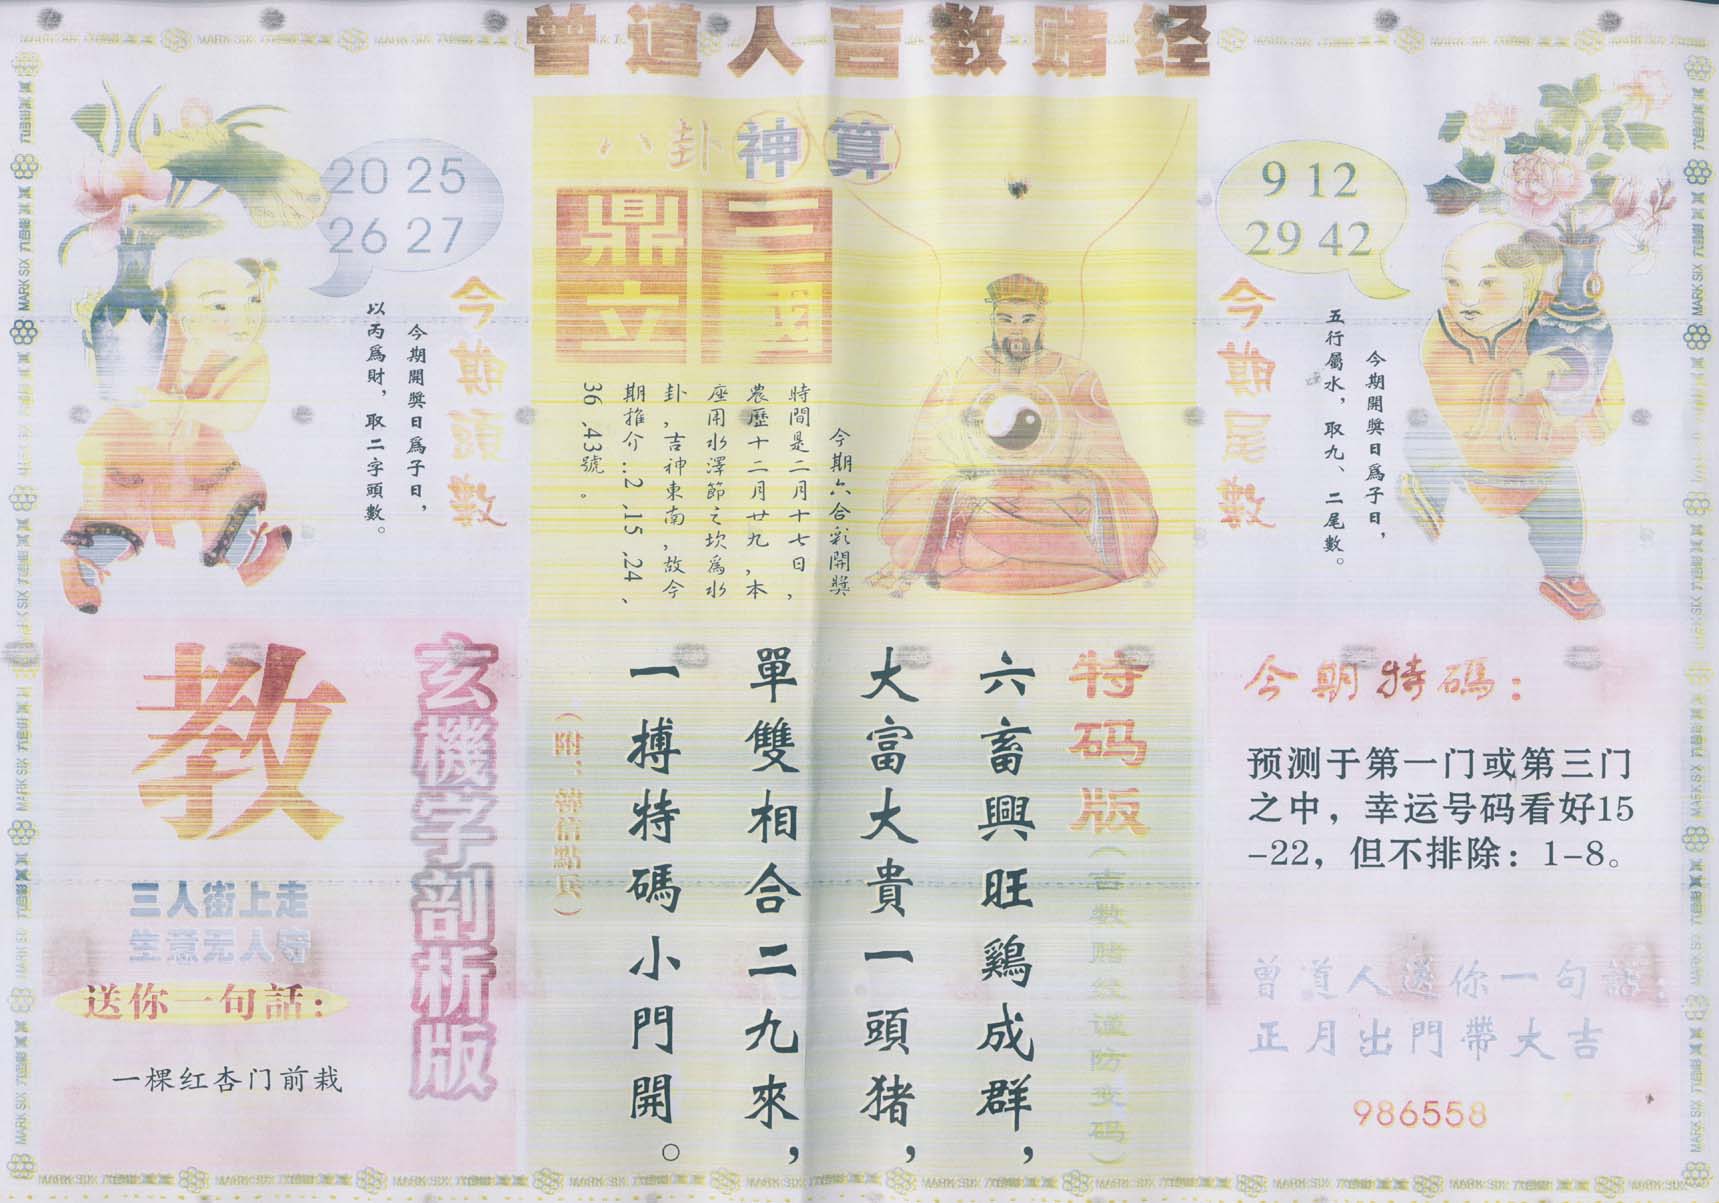 曾道人吉数赌经
八卦神算
三國鼎立
今期六合彩開獎
時間是二月十七日，
農歷十二月廿九，本
座用水澤節之坎爲水
卦，吉神東南，故今
期推介：2.15.24、
36.43號。
20 25
26 27
今期頭數
今期開獎日爲子日，
以丙爲財，取二字頭數。
9 12
29 42
今期尾數
今期開獎日爲子日，
五行屬水，取九、二尾數。
玄機字剖析版
教
三人街上走
生意无人守
送你一句話：
一棵红杏门前栽
特码版
（吉数赌经谨防变码）
六畜興旺鷄成群，
大富大貴一頭猪，
單雙相合二九來，
一搏特碼小門開。
（附：韓信點兵）
今期特碼：
预测于第一门或第三门
之中，幸运号码看好15
-22，但不排除：1-8。
曾道人送你一句話：
正月出門帶大吉
986558
MARK SIX 六合彩